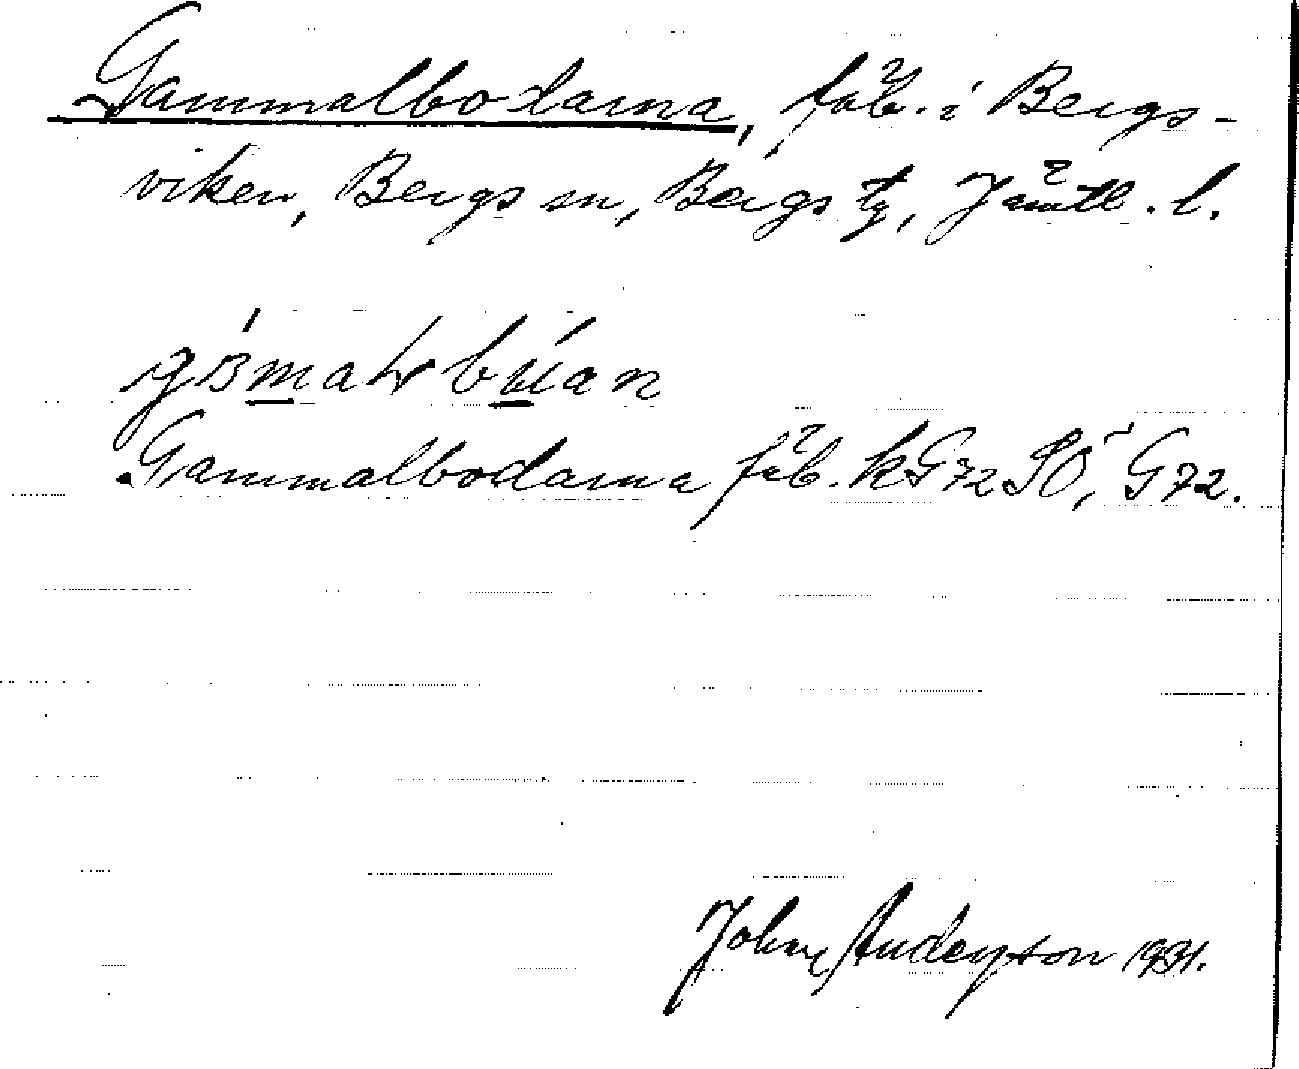 Gammalbodarna, fäb. i Bergs-
viken, Bergs sn, Bergs tg, Jämtl. l.
Gammalbodarna fäb. k G72 SO, G72.
Anderson 1931.